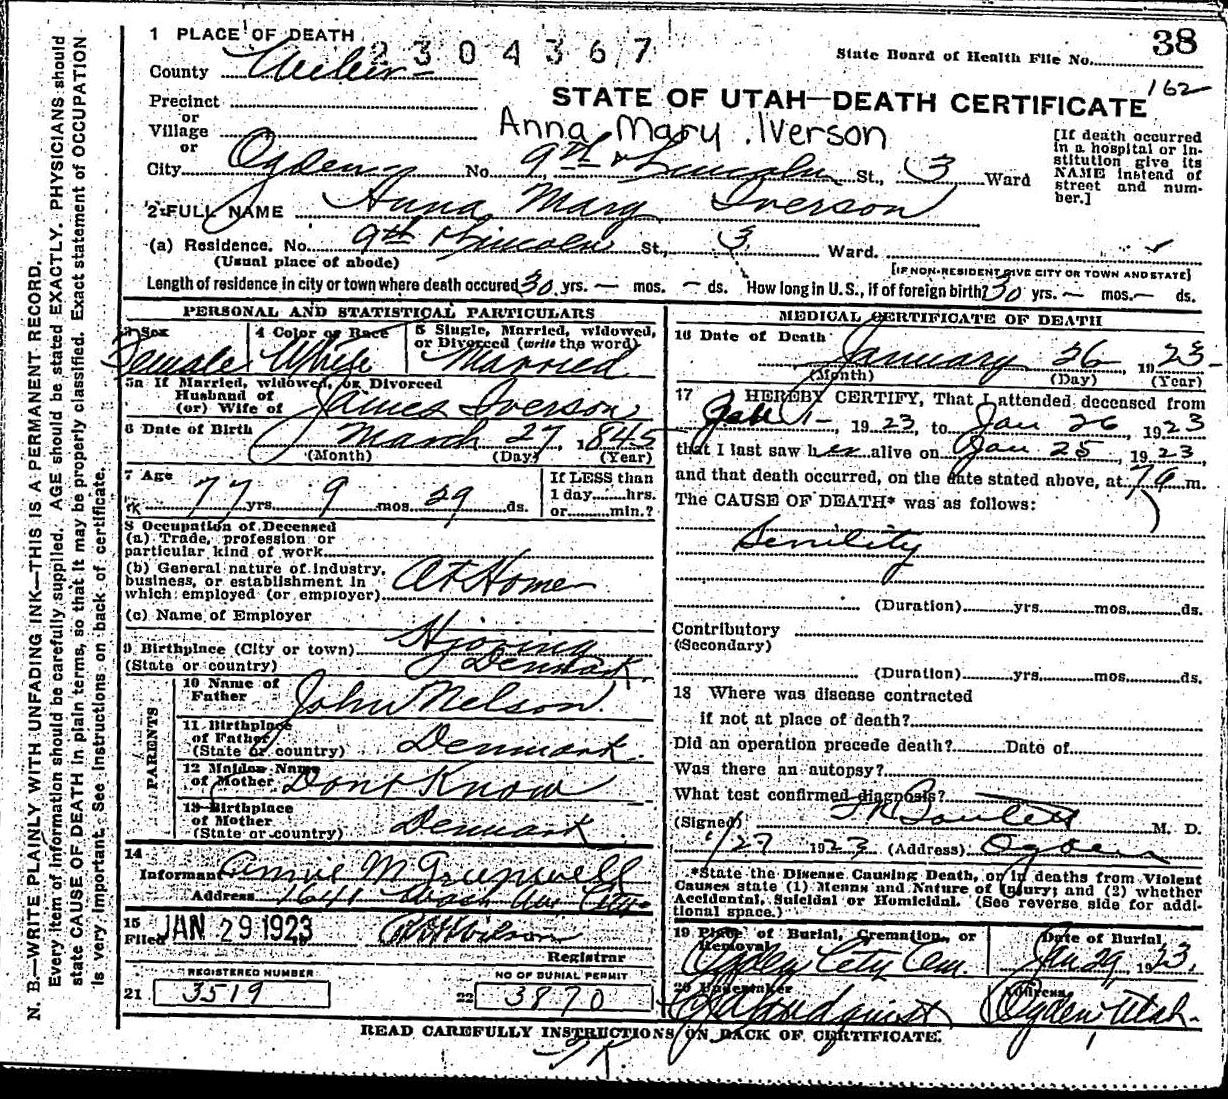 1 PLACE OF DEATH
2304367
State Board of Health File No. 38
County Weber
162
Precinct
or
Village
or
STATE OF UTAH—DEATH CERTIFICATE
Anna Mary Iverson
[If death occurred in a hospital or institution give its NAME instead of street and number.]
City Ogden No. 9th & Lincoln St., 3 Ward
2 FULL NAME Anna Mary Iverson
(a) Residence. No. 9th & Lincoln St., 3 Ward.
(Usual place of abode)
[IF NON-RESIDENT GIVE CITY OR TOWN AND STATE]
Length of residence in city or town where death occured 30 yrs. — mos. — ds. How long in U.S., if of foreign birth? 30 yrs. — mos. — ds.
PERSONAL AND STATISTICAL PARTICULARS
3 Sex
Female
4 Color or Race
White
5 Single, Married, widowed, or Divorced (write the word)
Married
5a If Married, widowed, or Divorced
Husband of
(or) Wife of James Iverson
6 Date of Birth March 27, 1845
(Month) (Day) (Year)
7 Age
77 yrs. 9 mos. 29 ds.
If LESS than
1 day......hrs.
or......min.?
8 Occupation of Deceased
(a) Trade, profession or
particular kind of work
(b) General nature of industry,
business, or establishment in
which employed (or employer) At Home
(c) Name of Employer
9 Birthplace (City or town) Hjoring
(State or country) Denmark
PARENTS
10 Name of
Father John Nelson
11 Birthplace
of Father
(State or country) Denmark
12 Maiden Name
of Mother Dont Know
13 Birthplace
of Mother
(State or country) Denmark
14
Informant Annie M Grunwell
Address 1641 Wash Ave City
15
Filed JAN 29 1923
Wilson
Registrar
REGISTERED NUMBER
21 3519
NO OF BURIAL PERMIT
22 3870
MEDICAL CERTIFICATE OF DEATH
16 Date of Death
January 26, 1923
(Month) (Day) (Year)
17 I HEREBY CERTIFY, That I attended deceased from
Jan 1—, 1923, to Jan 26, 1923
that I last saw her alive on Jan 25, 1923,
and that death occurred, on the date stated above, at 7 a m.
The CAUSE OF DEATH* was as follows:
Senility
(Duration) yrs. mos. ds.
Contributory
(Secondary)
(Duration) yrs. mos. ds.
18 Where was disease contracted
if not at place of death?
Did an operation precede death? Date of
Was there an autopsy?
What test confirmed diagnosis?
(Signed) M. D.
1/27 1923 (Address) Ogden
*State the Disease Causing Death, or in deaths from Violent
Causes state (1) Means and Nature of Injury; and (2) whether
Accidental, Suicidal or Homicidal. (See reverse side for additional space.)
19 Place of Burial, Cremation, or
Removal
Ogden City Cem.
Date of Burial
Jan 29, 1923.
20 Undertaker
Lindquist
Address
Ogden Utah.
READ CAREFULLY INSTRUCTIONS ON BACK OF CERTIFICATE.
N. B.—WRITE PLAINLY WITH UNFADING INK—THIS IS A PERMANENT RECORD.
Every item of information should be carefully supplied. AGE should be stated EXACTLY. PHYSICIANS should
state CAUSE OF DEATH in plain terms, so that it may be properly classified. Exact statement of OCCUPATION
is very important. See instructions on back of certificate.